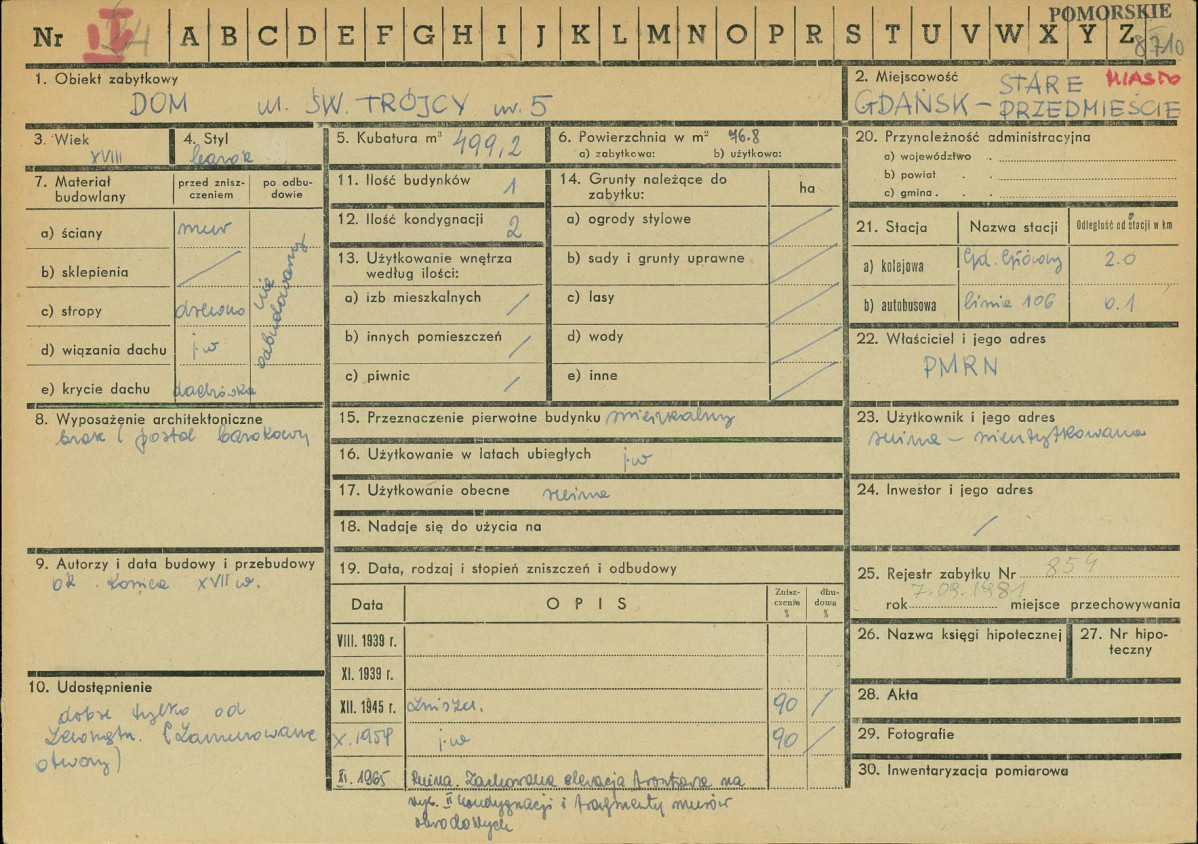 POMORSKIE
Nr IV A B C D E F G H I J K L M N O P R S T U V W X Y Z
8710
1. Obiekt zabytkowy
DOM ul. ŚW. TRÓJCY nr. 5
2. Miejscowość
STARE MIASTO
GDAŃSK – PRZEDMIEŚCIE
3. Wiek
XVIII
4. Styl
barok
5. Kubatura m³ 499,2
6. Powierzchnia w m² 76.8
a) zabytkowa: b) użytkowa:
7. Materiał budowlany
przed znisz-
czeniem
po odbu-
dowie
a) ściany mur
b) sklepienia /
c) stropy drewno
d) wiązania dachu j.w
e) krycie dachu dachówka
nie odbudowany
8. Wyposażenie architektoniczne
brak ( postal barokowy
9. Autorzy i data budowy i przebudowy
ok. końca XVII w.
10. Udostępnienie
dobre tylko od
zewnątrz. (Zamurowane
otwory)
11. Ilość budynków 1
12. Ilość kondygnacji 2
13. Użytkowanie wnętrza
według ilości:
a) izb mieszkalnych /
b) innych pomieszczeń /
c) piwnic /
14. Grunty należące do
zabytku: ha
a) ogrody stylowe
b) sady i grunty uprawne
c) lasy
d) wody
e) inne
15. Przeznaczenie pierwotne budynku mieszkalny
16. Użytkowanie w latach ubiegłych j.w
17. Użytkowanie obecne ruina
18. Nadaje się do użycia na
19. Data, rodzaj i stopień zniszczeń i odbudowy
Data OPIS
Znisz-
czenia
%
dbu-
dowa
%
VIII. 1939 r.
XI. 1939 r.
XII. 1945 r. zniszcz. 90 /
X. 1958 j.w 90 /
XI. 1965 Ruina. Zachowana elewacja frontowa na
wys. II kondygnacji i fragmenty murów
obwodowych
20. Przynależność administracyjna
a) województwo .
b) powiat . .
c) gmina . . .
21. Stacja Nazwa stacji Odległość od stacji w km
a) kolejowa Gd. Główny 2.0
b) autobusowa linia 106 0.1
22. Właściciel i jego adres
PMRN
23. Użytkownik i jego adres
ruina – nieużytkowana
24. Inwestor i jego adres
/
25. Rejestr zabytku Nr 854
rok 7.09.1981 miejsce przechowywania
26. Nazwa księgi hipotecznej
27. Nr hipo-
teczny
28. Akta
29. Fotografie
30. Inwentaryzacja pomiarowa